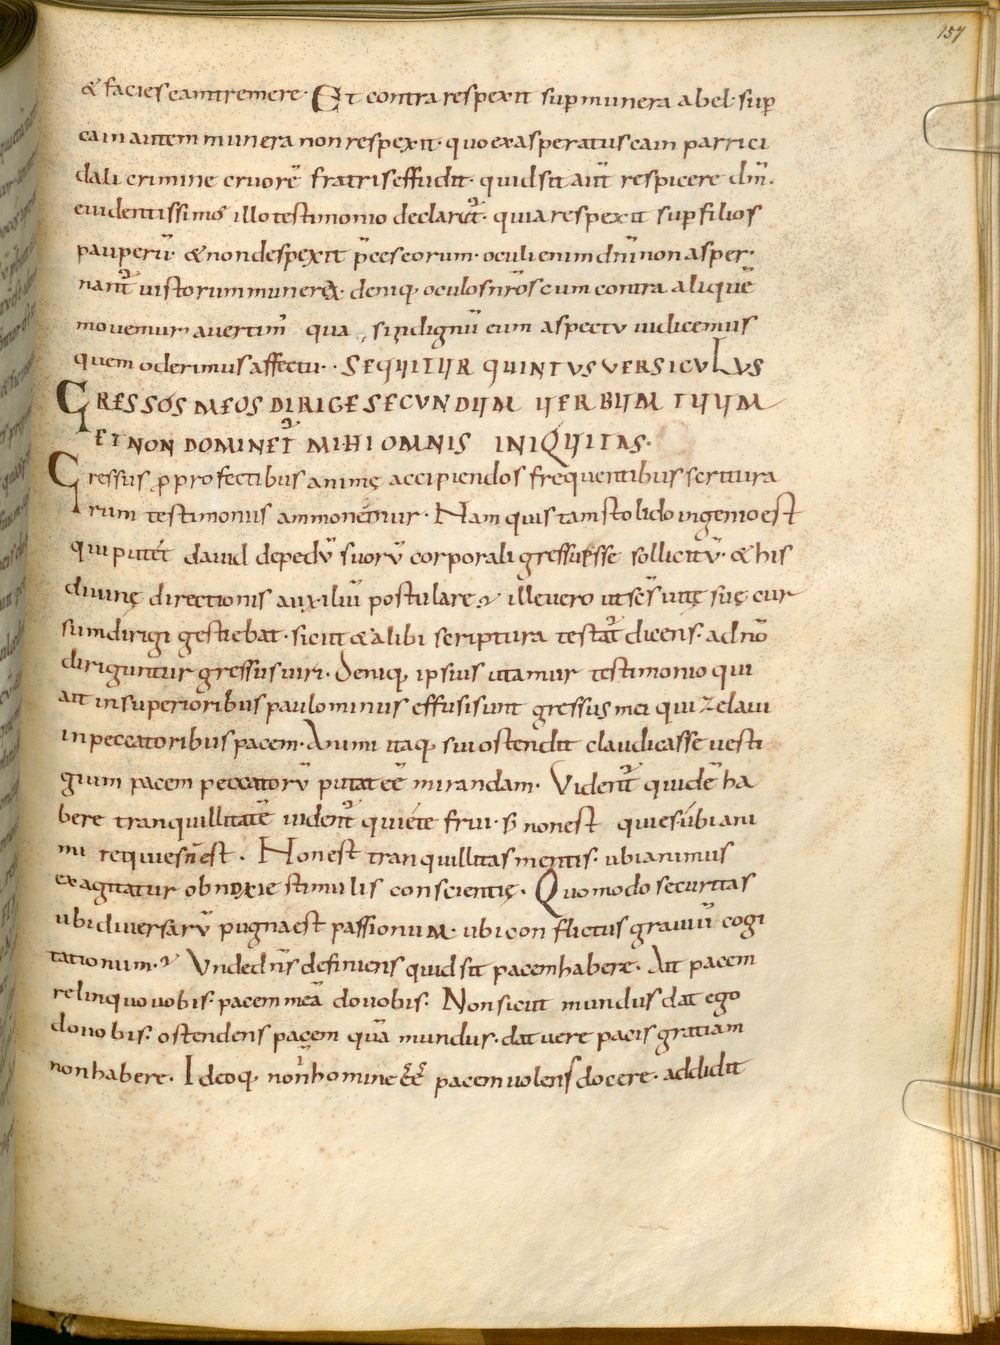 157
& facies eam tremere· Et contra respexit sup munera abel· sup
cain autem munera non respexit· quo exasperatus cain parrici
dali crimine cruorē fratris effudit· quid sit aut̄ respicere dn̄i·
euidentissimo illo testimonio declaret᷒· quia respexit sup filios
pauperū· & non despexit p̄ces eorum· oculi enim dn̄i non asper
nant᷒ uistorum munera· deniq, oculos nr̄os cum contra aliquē
mouemur auertim᷒ qua si indignū eum aspectu iudicemus
quem oderimus affectu·· SEQUITUR QUINTUS VERSICULUS
GRESSOS MEOS DIRIGE SECUNDUM UERBUM TUUM
ET NON DOMINET᷒ MIHI OMNIS INIQUITAS·
Gressus p profectibus animę accipiendos frequentibus scriptura
rum testimoniis ammonemur· Nam quis tam stolido ingenio est
qui putet dauid de pedū suorū corporali gressu esse sollicitū· & his
diuinę directionis auxiliū postulare; ille uero ut sc̄s uitę suę cur
sum dirigi gestiebat· sicut & alibi scriptura testat᷒ dicens· ad nō
diriguntur gressus uiri· Deniq, ipsius utamur testimonio qui
ait in superioribus paulominus effusi sunt gressus mei qui zelaui
in peccatoribus pacem· Animi itaq, sui ostendit claudicasse uesti
gium pacem peccatorū putat eē mirandam· Vident᷒ quidē ha
bere tranquillitatē uident᷒ quiete frui· s; non est quies ubi ani
mi requies n̄ est· Non est tranquillitas mentis· ubi animus
exagitatur obnoxie stimulis conscientię· Quomodo securitas
ubi diuersarū pugna est passionum· ubi conflictus grauiū cogi
tationum·; Vnde dn̄s definiens quid sit pacem habere· Ait pacem
relinquo uobis· pacem meā do uobis· Non sicut mundus dat ego
do uobis· ostendens pacem quā mundus· dat uere pacis gratiam
non habere· Ideoq, non homine eē pacem uolens docere· addidit